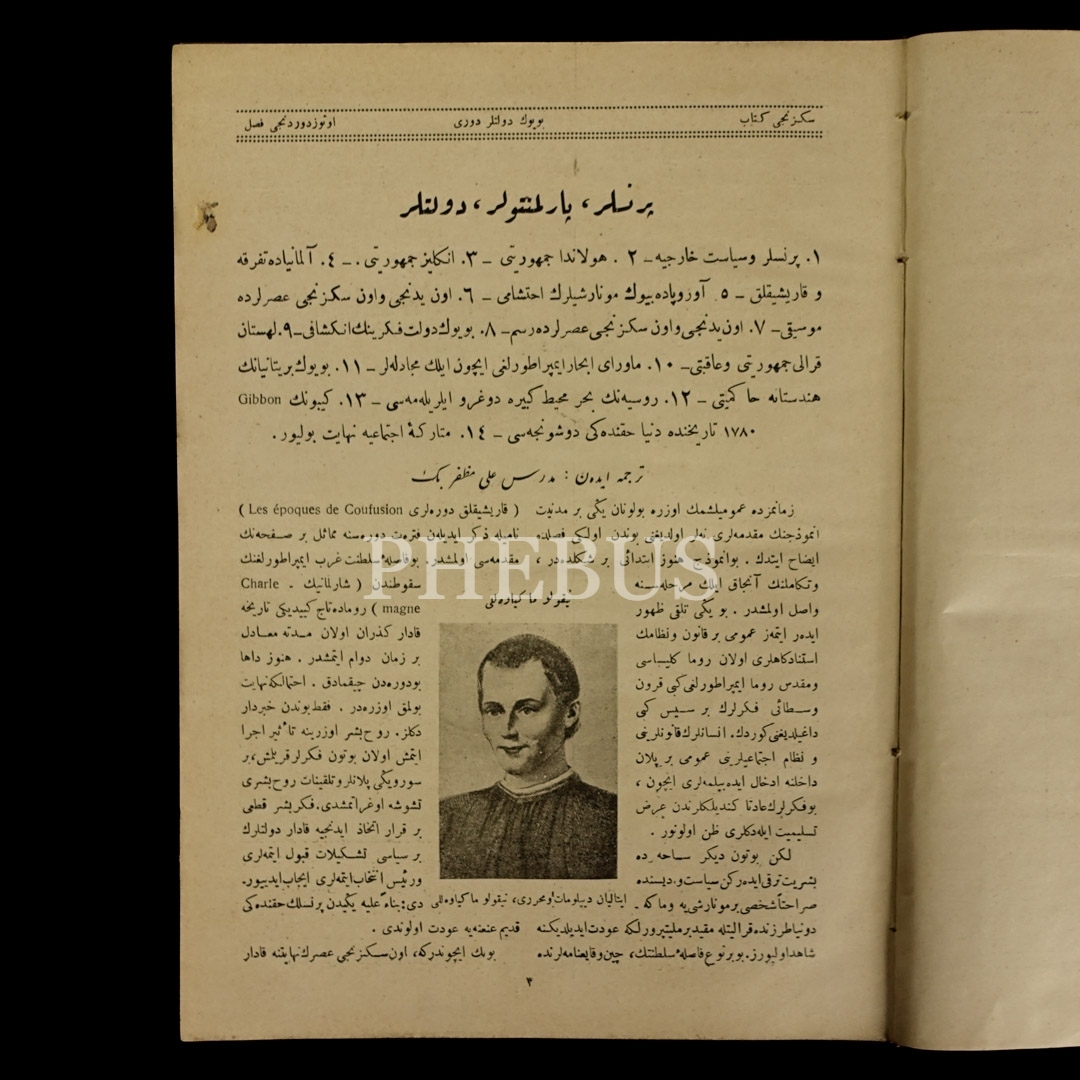 سكزنجی كتاب
بویوك دولتلر دوری
اوتوزدوردنجی فصل
پرنسلر، پارلمنتولر، دولتلر
۱. پرنسلر وسیاست خارجیه ـ ۲ . هولاندا جمهوریتی ـ ۳. انكلیز جمهوریتی . ـ ٤. آلمانیاده تفرقه
و قاریشیقلق ـ ٥. آوروپاده بیوك مونارشیلرك احتشامی ـ ٦. اون یدنجی واون سكزنجی عصرلرده
موسیقی ـ ۷. اون یدنجی واون سكزنجی عصرلرده رسم ـ ۸. بویوك دولت فكرینك انكشافی ـ ۹. لهستان
قرالی جمهوریتی وعاقبتی ـ ۱۰. ماورای ابحار ایمپراطورلغی ایچون ایلك مجادله‌لر ـ ۱۱. بویوك بریتانیانك
هندستانه حاكمیتی ـ ۱۲. روسیه‌نك بحر محیط كبیره دوغرو ایلریله‌مه‌سی ـ ۱۳. كیبونك Gibbon
۱۷۸۰ تاریخنده دنیا حقنده‌كی دوشونجه‌سی ـ ۱٤. متاركهٔ اجتماعیه نهایت بولیور .
ترجمه ایدەن : مدرس علی مظفر بك
زمانمزده عمومیلشمك اوزره بولونان یكی بر مدنیت
انموذجنك مقدمه‌لری نه‌لر اولدیغنی بوندن اولكی فصلده
ایضاح ایتدك . بوانموذج هنوز ابتدائی بر شكلده‌در ،
وتكاملنك آنجاق ایلك مرحله‌سنه
واصل اولمشدر . بو یكی تلقی ظهور
ایدەر ایتمەز عمومی بر قانون ونظامك
استنادكاهلری اولان روما كلیساسی
ومقدس روما ایمپراطورلغی كبی قرون
وسطائی فكرلرك بر سیس كبی
داغیلدیغنی كوردك. انسانلرك قانونلرینی
و نظام اجتماعیلرینی عمومی بر پلان
داخلنه ادخال ایده‌بیلمه‌لری ایچون ،
بوفكرلرك عادتا كندیلكلرندن عرض
تسلیمیت ایله‌دكلری ظن اولونور .
لكن بوتون دیكر ساحه‌ده
بشریت ترقی ایدەركن سیاست و دیسنده
صراحتاً شخصی بر مونارشی‌یه وماكه ـ
دونیاطرزنده قرالیتله مقید بر ملیتپرورلكه عودت ایدیلدیكنه
شاهد اولیورز. بو بر نوع فاصلهٔ سلطنتك، چین وقایعنامه‌لرنده
نیقولو ماكیاوه‌للی
ایتالیان دیپلومات و محرری، نیقولو ماكیاوه‌للی
( قاریشیقلق دوره‌لری Les époques de Coufusion )
نامیله ذكر ایدیلەن فترت دوره‌سنه مماثل بر صفحه‌نك
مقدمه‌سی اولمشدر. بوفاصلهٔ سلطنت غرب ایمپراطورلغنك
سقوطندن ( شارلمانیك ـ Charle
magne ) روماده تاج كییدیكی تاریخه
قادار كذران اولان مدته معادل
بر زمان دوام ایتمشدر . هنوز داها
بودوره‌دن چیقمادق . احتمالكه نهایت
بولمق اوزره‌در . فقط بوندن خبردار
دكلز. روح بشر اوزرینه تأثیر اجرا
ایتمش اولان بوتون فكرلر قریلمش، بر
سورویكی پلانلر و تلقینات روح بشری
تشوشه اوغراتمشدی. فكر بشر قطعی
بر قرار اتخاذ ایدنجیه قادار دولتلرك
بر سیاسی تشكیلات قبول ایتمه‌لری
ورئیس انتخاب ایتمه‌لری ایجاب ایدییور.
دی: بناءً علیه یكیدن پرنسلك حقنده‌كی
قدیم عنعنه‌یه عودت اولوندی .
بونك ایچوندركه، اون سكزنجی عصرك نهایتنه قادار
۳
PHEBUS